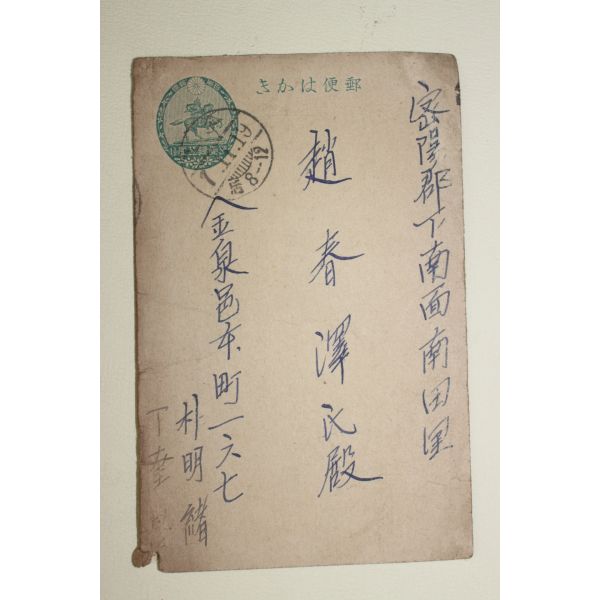 郵便はかき
密陽郡下南面南田里
趙春澤氏殿
金泉邑本町一六七
朴明緖
11.19
8-12